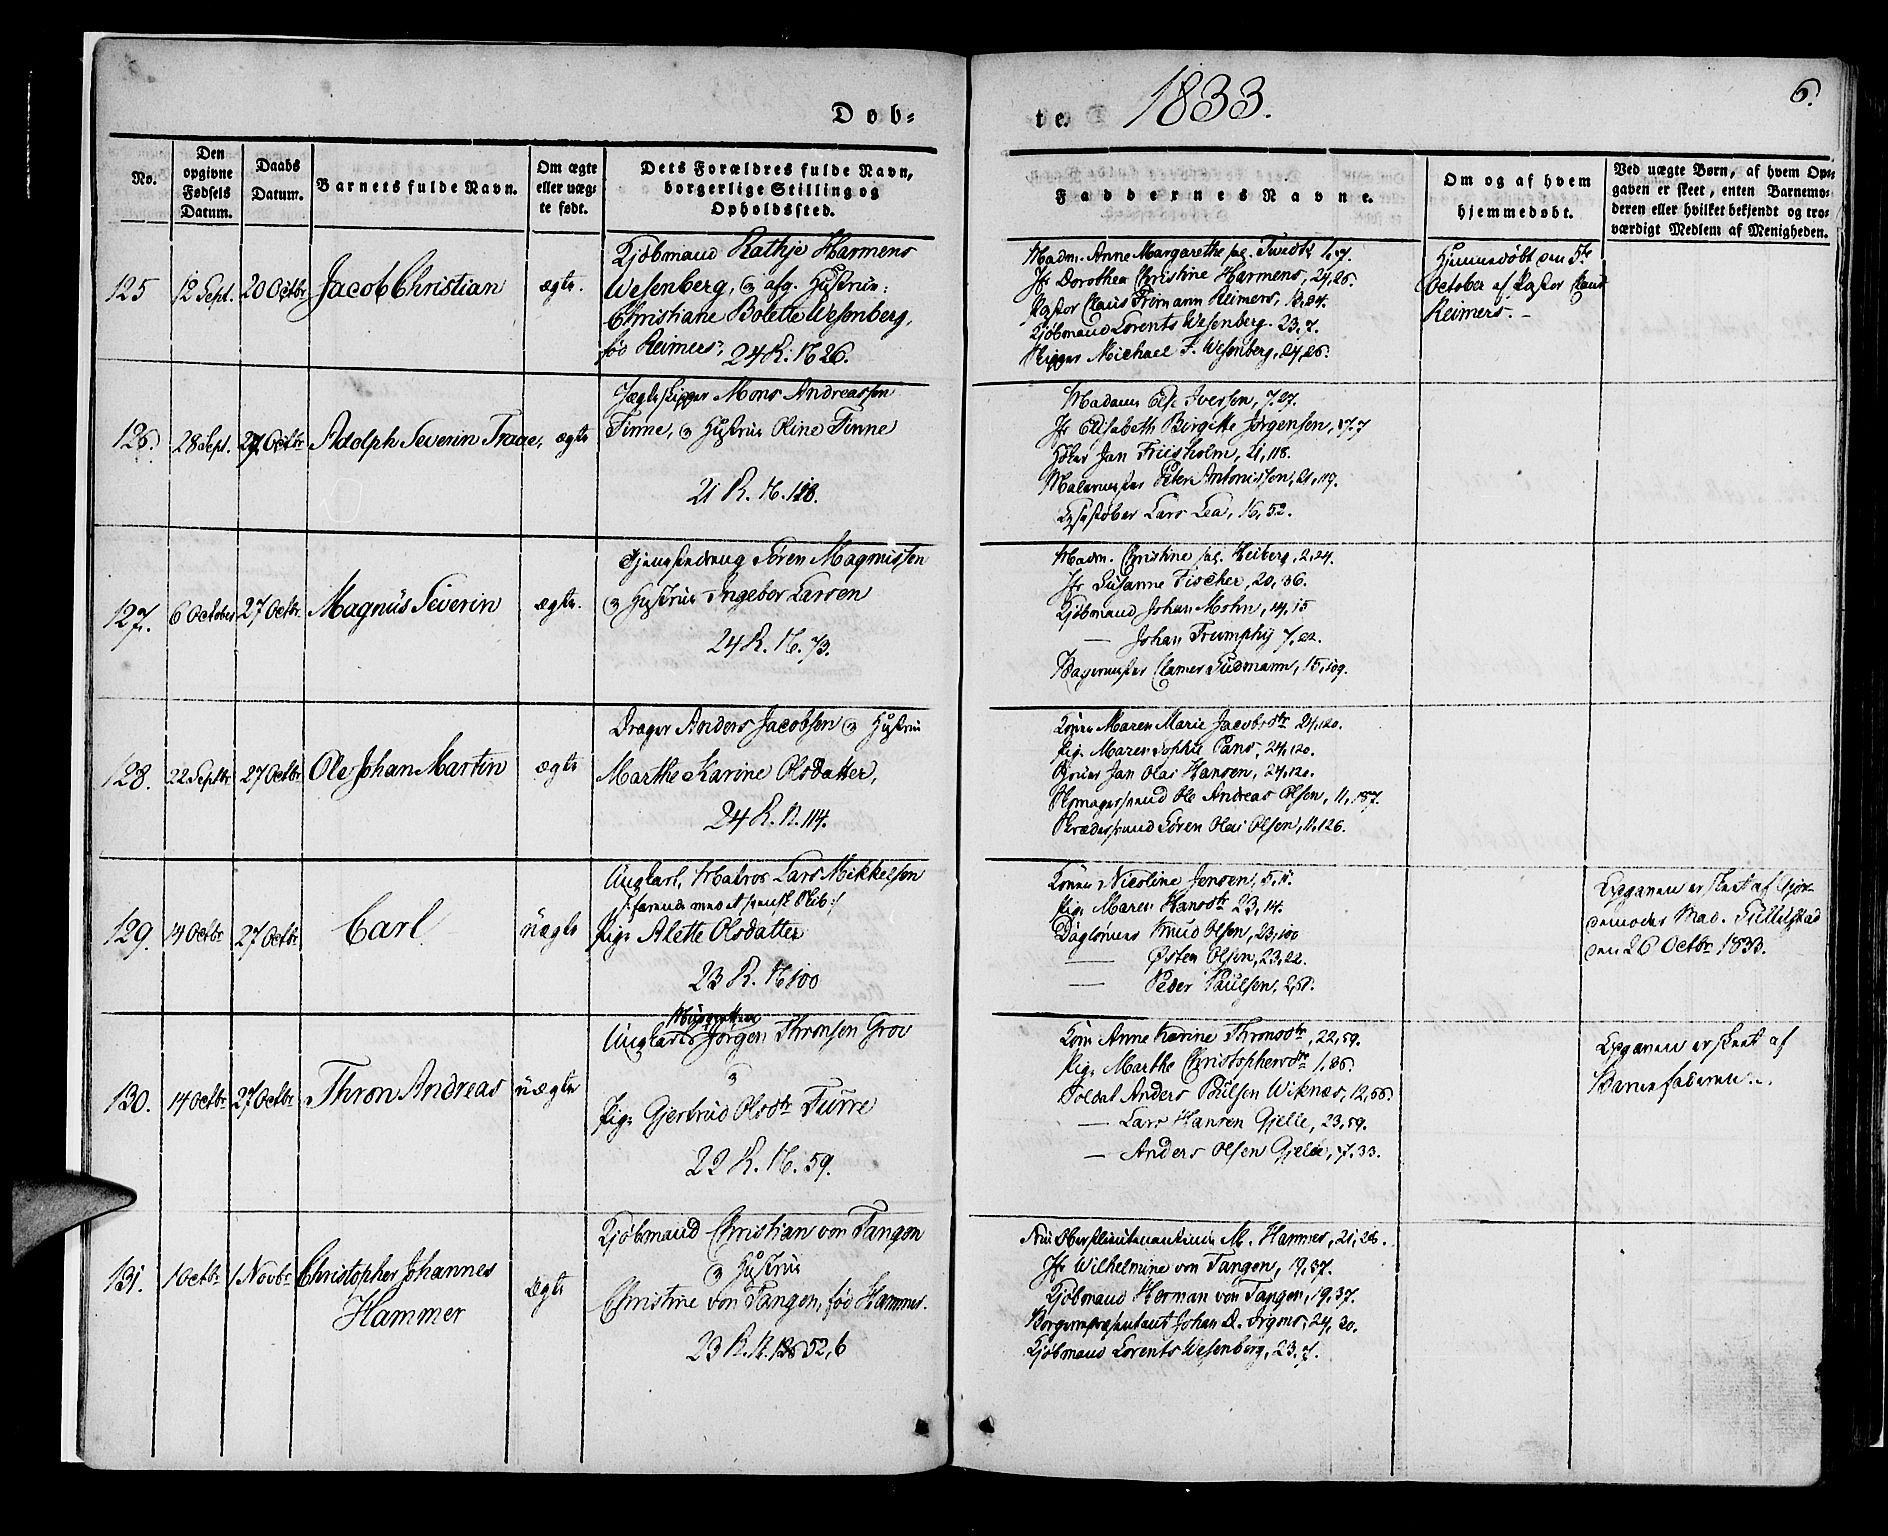 Døb-
te. 1833.
6.
No.
Den opgivne Fødsels Datum.
Daabs Datum.
Barnets fulde Navn.
Om ægte eller uæg-te født.
Dets Forældres fulde Navn, borgerlige Stilling og Opholdssted.
Faddernes Navne.
Om og af hvem hjemmedøbt.
Ved uægte Børn, af hvem Op-gaven er skeet, enten Barnemo-deren eller hvilket bekjendt og tro-værdigt Medlem af Menigheden.
125
12 Sept.
20 Octbr
Jacob Christian
ægte.
Kjøbmand Rathje Harmens
Wesenberg, & afg. Hustrue:
Christiane Bolette Wesenberg,
fød Reimers, 24 R. N 26.
Madm. Anne Margarethe sal.
Jfr Dorothea Christine Harmens, 24,26.
Pastor Claus Frimann Reimers,
Kjøbmand Lorents Wesenberg. 23,7.
Skipper Michael F. Wesenberg, 24,26.
Hjemmedøbt den 5te
October af Pastor Claus
Reimers.
126.
28 Sept.
27 Octbr
Adolph Severin Traae,
ægte
Jægteskipper Mons Andreassen
Finne, & Hustrue Oline Finne
21 R. N. 118.
Madame Else Iversen, 7.27.
Jfr Elisabeth Birgitte Jørgensen, 17.7
Jan Friisholm, 21,118.
Malermester Peter Antonissen, 21,119.
Lars Lea, 16,52.
127.
6 October
27 Octbr.
Magnus Severin
ægte.
Tjenestedreng Søren Magnussen
& Hustrue Ingebor Larsen
24 R. N. 73.
Madm. Christine sal. Heiberg, 2,24.
Jfr Susanne Fischer, 20,36.
Kjøbmand Johan Mohn, 14,15
— Johan Trumphy 7,22.
Bagermester Clamer Sudmann, 15,109.
128.
22 Septbr
27 Octbr
Ole Johan Martin
ægte
Drager Anders Jacobsen & Hustrue
Marthe Karine Olsdatter,
24 R. N. 114.
Konen Maren Marie Jacobsdtr 24,120.
Pige Maren Sophie Pans, 24,120.
Jan Olai Hansen, 24,120.
Ole Andreas Olsen, 11,157.
Skrædersvend Søren Olai Olsen, 11.126.
129.
14 Octbr
27 Octbr
Carl
uægte
Ungkarl, Matros Lars Mikkelsen
/: farende med et spansk Skib :/
Pige Alette Olsdatter
23 R. N 100
Konen Nicoline Jensen, 5,
Pige Maren Hansdtr 23,14.
Daglønner Knud Olsen, 23,100
— Østen Olsen, 23,22.
— Peder Paulsen,
Opgaven er skeet af Gjor-
demoder Mad. Tullilstad
den 26 Octbr 1833.
130.
14 Octbr
27 Octbr
Thron Andreas
uægte
Ungkarl Jørgen Thronsen Grov
&
Pige Gjertrud Olsdtr Furre
22 R. N. 59.
Kone Anne Karine Thronsdtr, 22,59.
Pige Marthe Christophersdtr
Soldat Anders Poulsen Wiknæs, 12,56.
— Lars Hansen Gjelle, 23,59.
— Anders Olsen Gjelle, 7.33.
Opgaven er skeet af
Barnefaderen.
131.
1 Octbr
1 Novbr
Christopher Johannes
Hammer
Ægte
Kjøbmand Christian von Tangen
& Hustrue
Christine von Tangen, fød Hammer.
23 R. N. 52,6
Frue Oberstlieutenantinne M. Hammer, 21,
Jfr Wilhelmine von Tangen, 19,37.
Kjøbmand Herman von Tangen, 19,37.
Borgerrepræsentant Johan D. Irgens, 24,20.
Kjøbmand Lorents Wesenberg, 23.7.